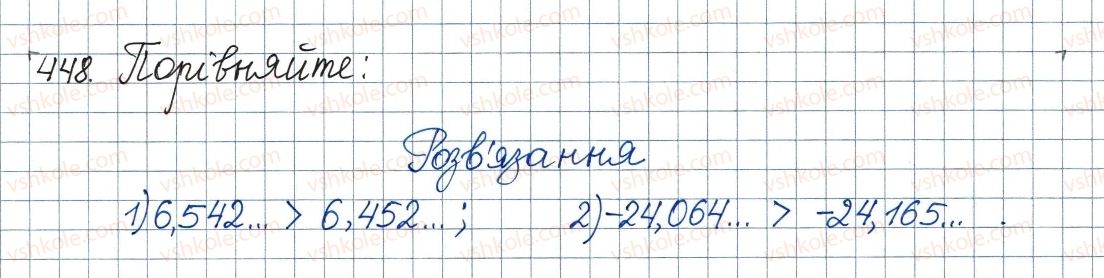 448. Порівняйте:
Розв'язання
1) 6,542... > 6,452...; 2) -24,064... > -24,165... .